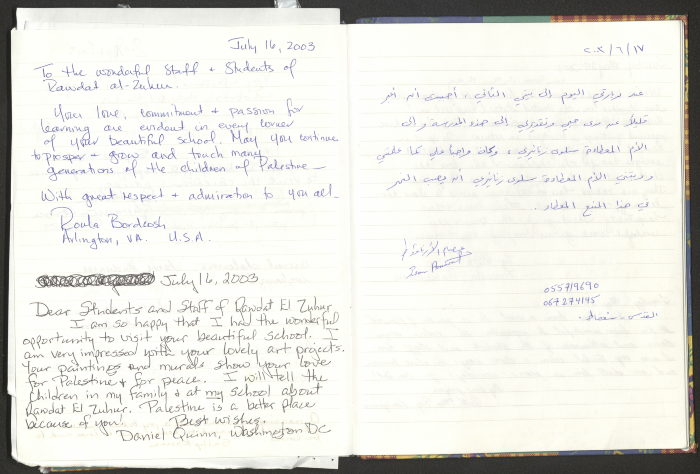 July 16, 2003
To the wonderful Staff + Students of
Rawdat al-Zuhur
Your love, commitment + passion for
learning are evident in every corner
of your beautiful school. May you continue
to prosper + grow and touch many
generations of the children of Palestine —
With great respect + admiration to you all -
Roula Bordcosh
Arlington, VA. U.S.A.
July 16, 2003
Dear Students and Staff of Rawdat El Zuhur
I am so happy that I had the wonderful
opportunity to visit your beautiful school. I
am very impressed with your lovely art projects.
Your paintings and murals show your love
for Palestine & for peace. I will tell the
children in my family & at my school about
Rawdat El Zuhur. Palestine is a better place
because of you! Best wishes,
Daniel Quinn, Washington DC
٢٠٠٣/٦/١٧
عند زيارتي اليوم إلى بيتي الثاني، أحببت أن أعبر
قليلاً عن مدى حبي وتقديري إلى هذه المدرسة وإلى
الأم المعطاءة سلوى زنانيري، وكان واجباً علي كما علمتني
وربتني الأم المعطاءة سلوى زنانيري أن
في هذا المعطاء.
055719690
067274145
القدس -